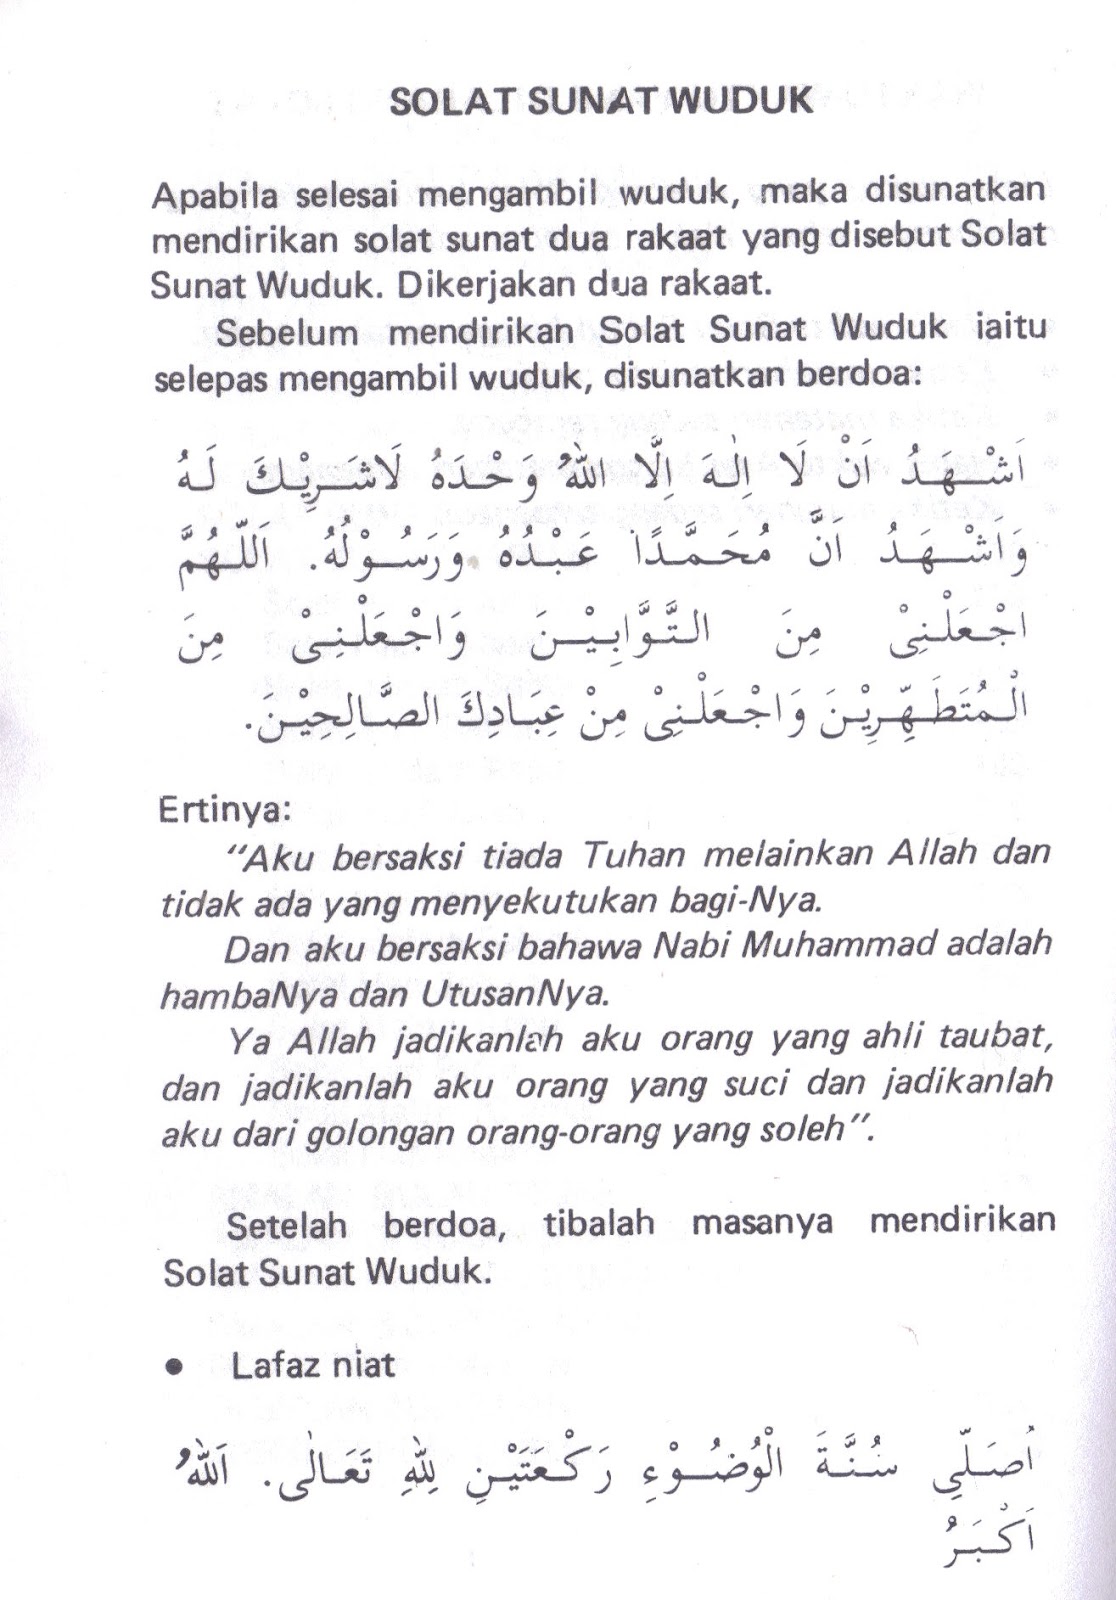 SOLAT SUNAT WUDUK
Apabila selesai mengambil wuduk, maka disunatkan
mendirikan solat sunat dua rakaat yang disebut Solat
Sunat Wuduk. Dikerjakan dua rakaat.
Sebelum mendirikan Solat Sunat Wuduk iaitu
selepas mengambil wuduk, disunatkan berdoa:
اَشْهَدُ اَنْ لَا اِلٰهَ اِلَّا اللّٰهُ وَحْدَهُ لَاشَرِيْكَ لَهُ
وَاَشْهَدُ اَنَّ مُحَمَّدًا عَبْدُهُ وَرَسُوْلُهُ. اَللّٰهُمَّ
اجْعَلْنِيْ مِنَ التَّوَّابِيْنَ وَاجْعَلْنِيْ مِنَ
الْمُتَطَهِّرِيْنَ وَاجْعَلْنِيْ مِنْ عِبَادِكَ الصَّالِحِيْنَ.
Ertinya:
"Aku bersaksi tiada Tuhan melainkan Allah dan
tidak ada yang menyekutukan bagi-Nya.
Dan aku bersaksi bahawa Nabi Muhammad adalah
hambaNya dan UtusanNya.
Ya Allah jadikanlah aku orang yang ahli taubat,
dan jadikanlah aku orang yang suci dan jadikanlah
aku dari golongan orang-orang yang soleh".
Setelah berdoa, tibalah masanya mendirikan
Solat Sunat Wuduk.
• Lafaz niat
اُصَلِّى سُنَّةَ الْوُضُوْءِ رَكْعَتَيْنِ لِلّٰهِ تَعَالٰى. اَللّٰهُ
اَكْبَرُ